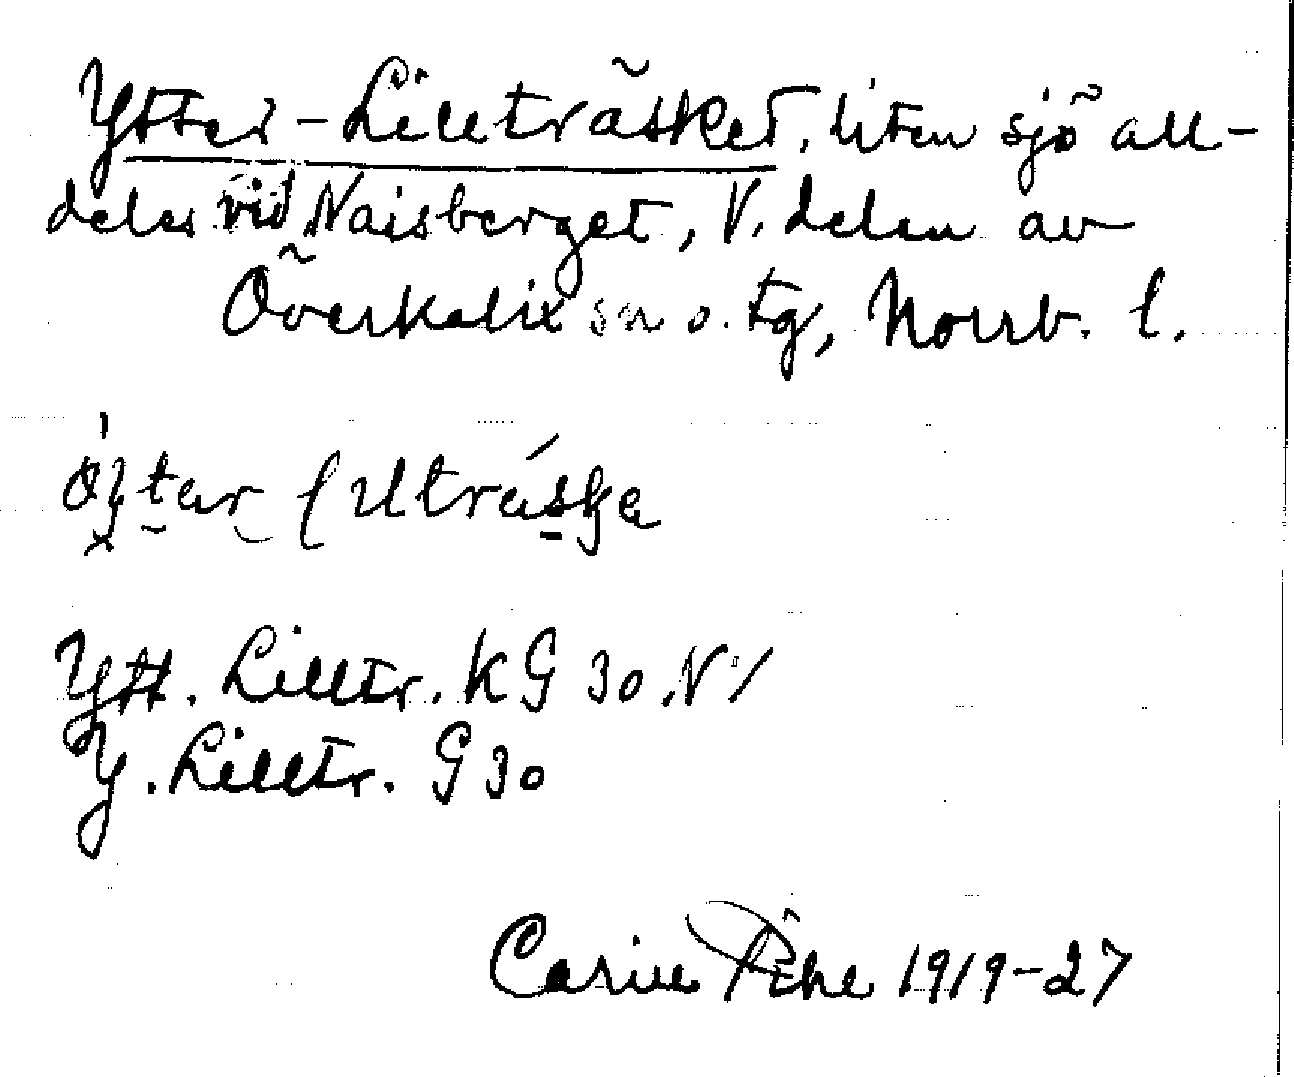 Ytter-Lillträsket, liten sjö all-
deles vid Naisberget, V. delen av
Överkalix sn o. tg, Norrb. l.
Ytt. Lilltr. KG 30 NV
Y. Lilltr. G 30
Carin Pihl 1919-27